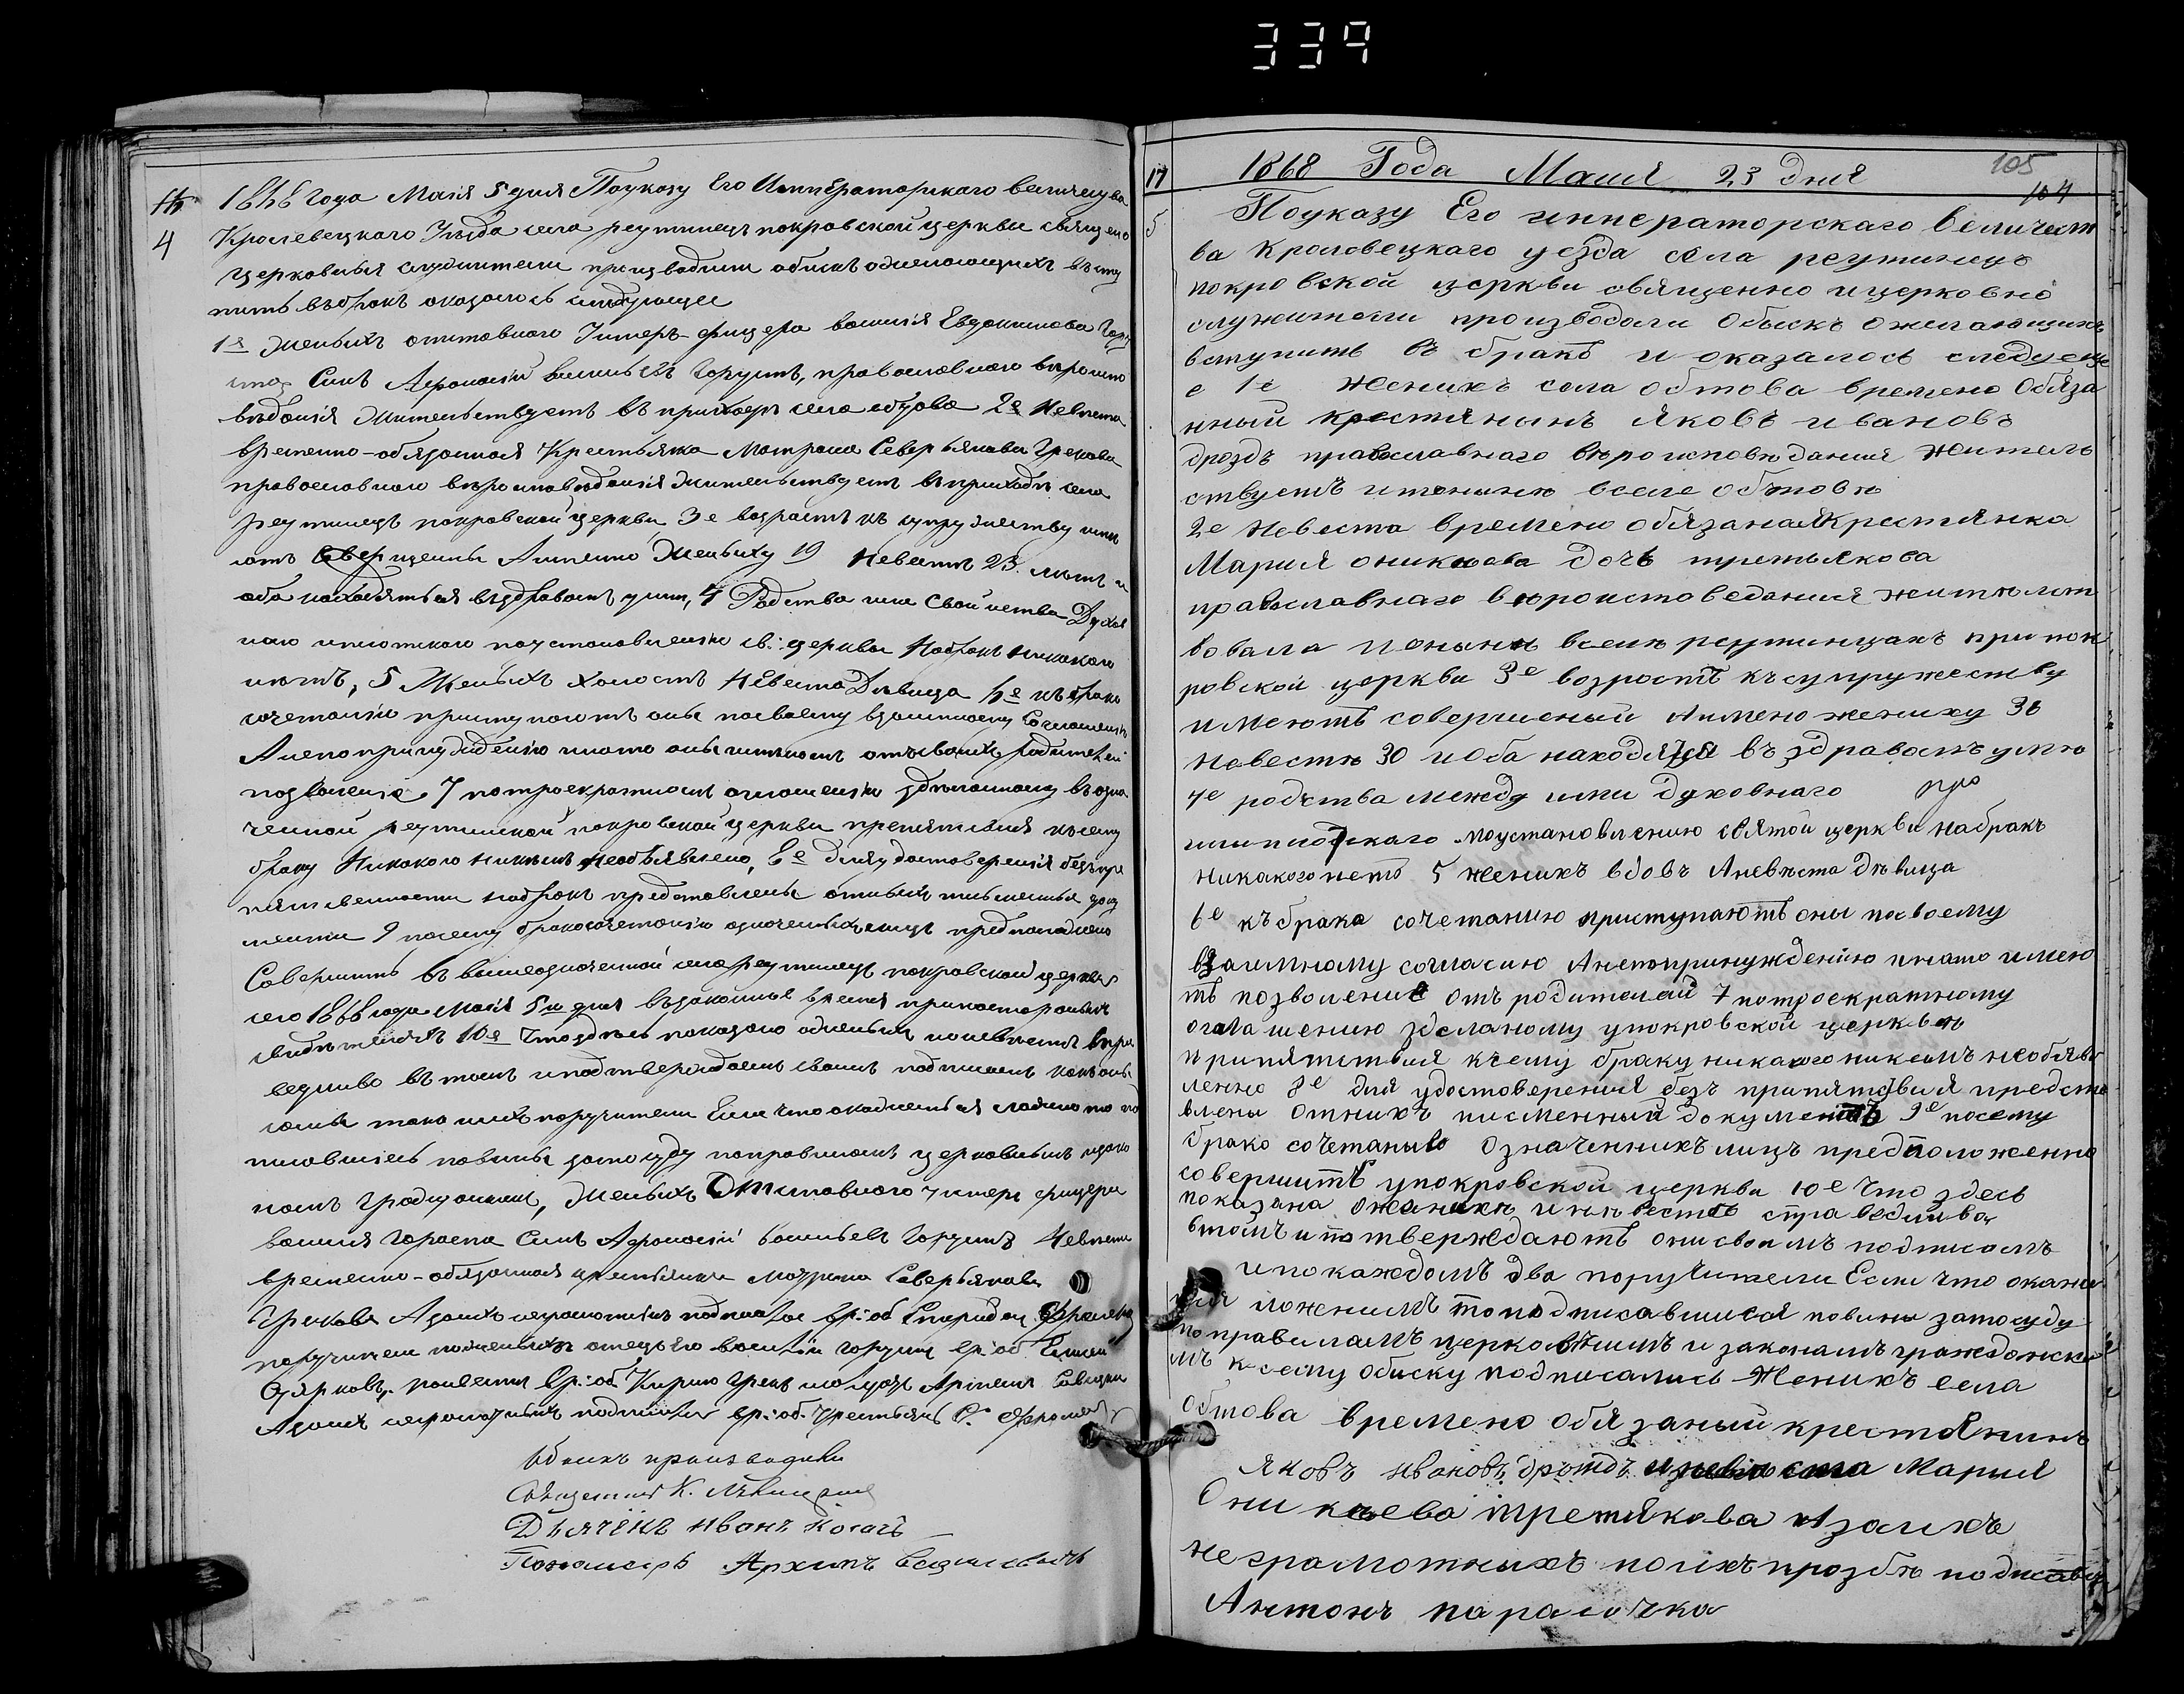 339
4
1868 года Маія 5 дня Поуказу Его Императорскаго величества
Кролевецкаго Уезда села реутинецъ покровской церкви священо
церковныя служители производили обискъ ожелающихъ въсту
пить въбракъ оказалось следующее
1е Женихъ отставного Унтеръ-фицера василія Евдокимова
Синъ Афанасій васильевъ Горунъ, православного веройспо
веданія Жительствуетъ въ приходе села обтова 2е Невеста
временно-обязанная Крестьянка Матрона Северьянова Грекова
православного вероисповеданія Жительствуетъ въприходе села
реутинецъ покровской церкви 3е возрастъ къ супружеству име
ютъ Совершенны Аименно Жениху 19 Невесте 23 летъ и
оба находяться въздравомъ уме, 4 Родства или Свойства Духов
ного иплотского поустановленію св: церкви Набракъ никакого
нетъ, 5 Женихъ холостъ Невеста Девица 6е къ брако
сочетанію приступаютъ оны посвоему взаимному Согласію
Анепопринуждденію инато оны имеютъ отъсвоихъ родителей
позволеніе 7 потроекратномъ оглашенію зделанному въозна
ченной реутинской покровской церкви препятствія късему
браку Никакого никемъ необъявлено, 8е дляудостоверенія безпре
пятственности набракъ представлены отнихъ письменныя доку
менти 9 посему бракосочетанію означенныхълицъ предположено
Совершить въ вышеозначенной села реутинецъ покровской церкви
сего 1868 года Маія 5го дня възаконное время припостороннихъ
свидетеляхъ 10е Чтоздесь показано оженихе иневесте спра
ведливо въ томъ иподтверждаемъ своимъ подписомъ какъ оны
самы тако ихъ поручители Если что окажеться ложно то по
писовшіесь повинны затосуду поправиломъ церковнимъ изако
номъ Гражданским, Женихъ Отставного унтеръ фицера
василія Горуна Синъ Афанасій васильевъ Горунъ Невеста
временно-обязанная крестьянка Матрона Северьянова
Грекова Азаихъ неграмотнихъ подписался вр:-об Спиридон
поручители поженихе отецъ его василій горунъ вр:об
поневесте вр:об Кирило Грекъ
Азаихъ неграмотныхъ подписался вр:-об. Крестьянъ С.
Обискъ производили
Священникъ К. Левицкій
Дьячекъ Иванъ Косачъ
Пономарь Архипъ
17
1868 Года Маия 23 дня
105
104
5
Поуказу Его инператорскаго величест
ва кроловецкаго уезда села реутинецъ
покровской церкви овященно ицерковно
служители производили обыскъ ожелающихъ
вступить въ бракъ и оказалось следуеще
е 1е женихъ села обтова времено обяза
нный крестянынъ Яковъ ивановъ
дроздъ православнаго вероисповеданиа житель
ствуетъ итеныню вселе обътове
2е невеста времено обязанаяКрестянка
Мариа оникиева дочъ третьякова
православнаго вероистоведания жительст
вовала ионыне всели реутинцахъ припок
ровской церкви 3е возростъ късупружеству
имеютъ совершеный Аимено жениху 36
невесте 30 иоба находятся въздравомъ уме
4е родъства между ими духовнаго про
илиплодскаго поустановлению святой церкви набракъ
никакогонетъ 5 женихъ вдовъ Аневеста девица
6е къбрака сочетанию приступаютъ оны посвоему
взаимному согласию Анепопринуждению инато имею
тъ позволение отъ родителай 7 потроекратному
огалашению зделаному упокровской церкве
припятствия къему браку никакогоникемъ необяв
ленно 8е для удостоверения безъ припятствия предста
влены отнихъ писменный документъ 9е посему
брако сочетанию означенникълицъ предположенно
совершить упокровской церкви 10е что здесь
показана оженихе иневестъ справедлива
втомъ иподтверждаютъ онисвоимъ подписомъ
ипокаждомъ два поручители Если что окаже
тся ложнимъ топодписавшиися повины затосуду
поправиламъ церковнымъ и законамъ гражданским
мъ ксему обиску подписались Женихъ села
Обтова времено обязаный крестянинъ
Яковъ ивановъ дроздъ иневеста Мария
Оникиева третякова Азаихъ
неграмотныхъ поихъ прозбе подисавъ
Антонъ парасочка